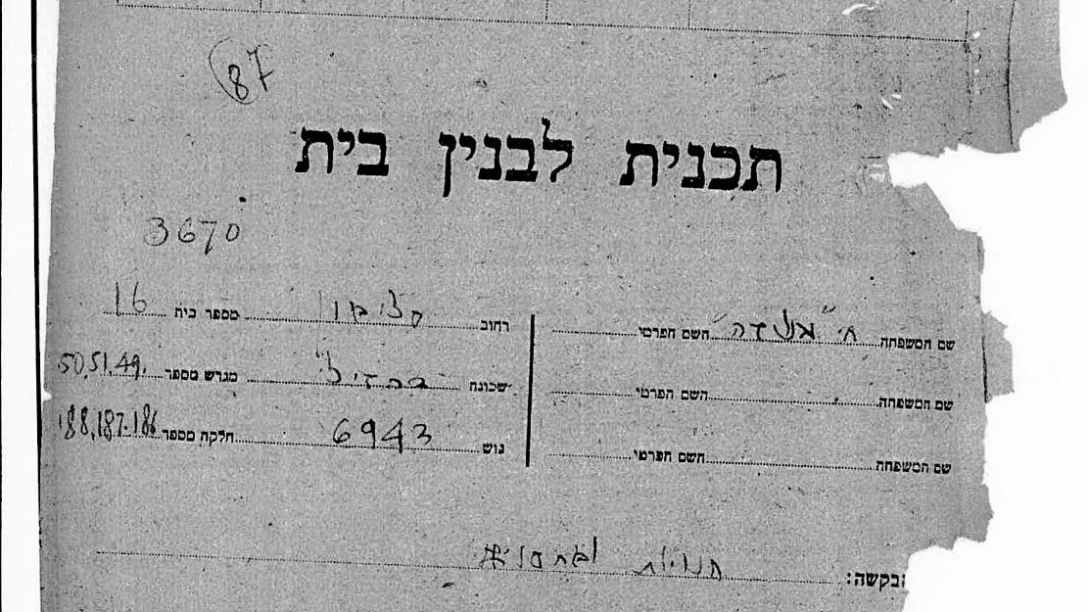 87
תכנית לבנין בית
3670
שם המשפחה ח' "מעודה" השם הפרטי
רחוב סלומון מספר בית 16
שם המשפחה השם הפרטי
שכונה מגרש מספר 50,51,49
שם המשפחה השם הפרטי
גוש 6943 חלקה מספר 188,187-186
הבקשה: חנויות ומחסנים